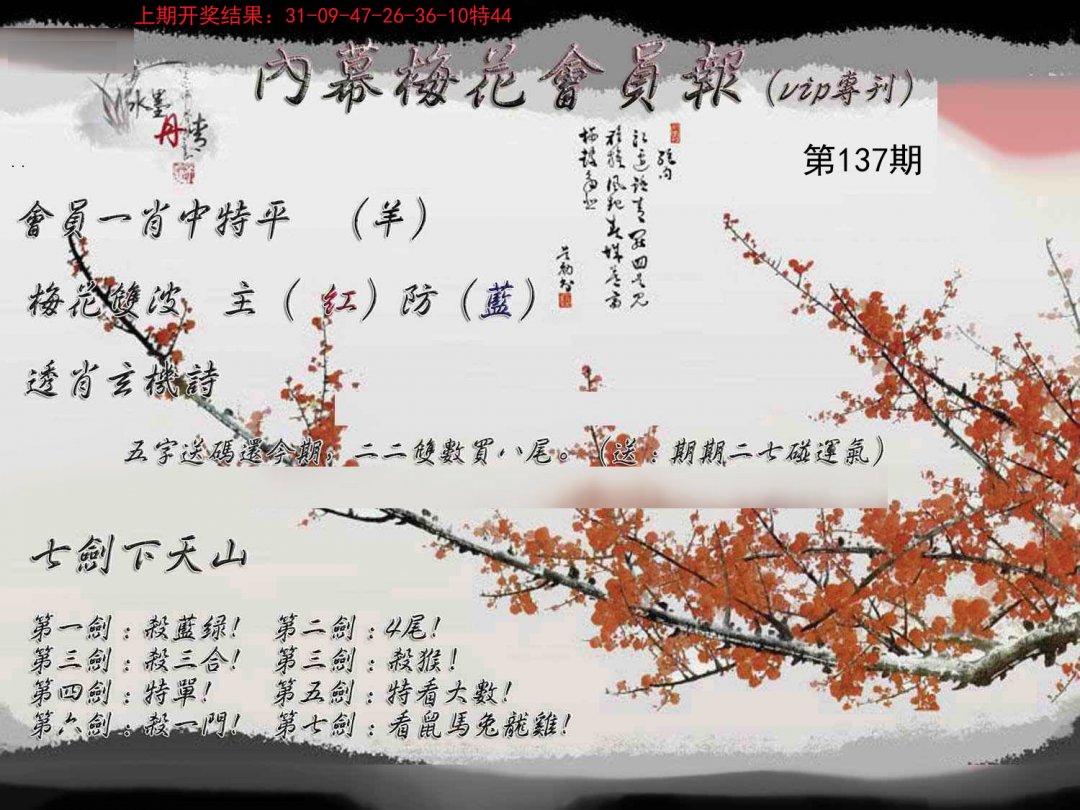 上期开奖结果：31-09-47-26-36-10特44
內幕梅花會員報（vip專刊）
水墨丹青
第137期
會員一肖中特平 （羊）
梅花雙波 主（紅）防（藍）
透肖玄機詩
五字送碼還今期，二二雙數買八尾。（送：期期二七碰運氣）
七劍下天山
第一劍：殺藍绿！ 第二劍：4尾！
第三劍：殺三合！ 第三劍：殺猴！
第四劍：特單！ 第五劍：特看大數！
第六劍：殺一門！ 第七劍：看鼠馬兔龍雞！